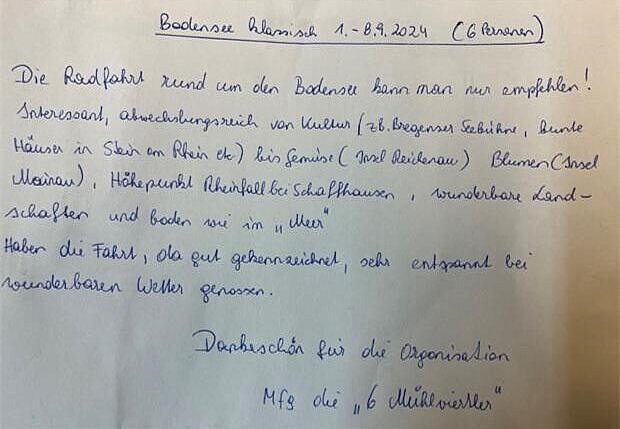 Bodensee klassisch 1.-8.9.2024 (6 Personen)
Die Radfahrt rund um den Bodensee kann man nur empfehlen!
Interessant, abwechslungsreich von Kultur (zb. Bregenser Seebühne, bunte
Häuser in Stein am Rhein etc.) bis Gemüse (Insel Reichenau) Blumen (Insel
Mainau), Höhepunkt Rheinfall bei Schaffhausen, wunderbare Land-
schaften und baden wie im „Meer"
Haben die Fahrt, da gut gekennzeichnet, sehr entspannt bei
wunderbaren Wetter genossen.
Dankeschön für die Organisation
Mfg die „6 Mühlviertler"